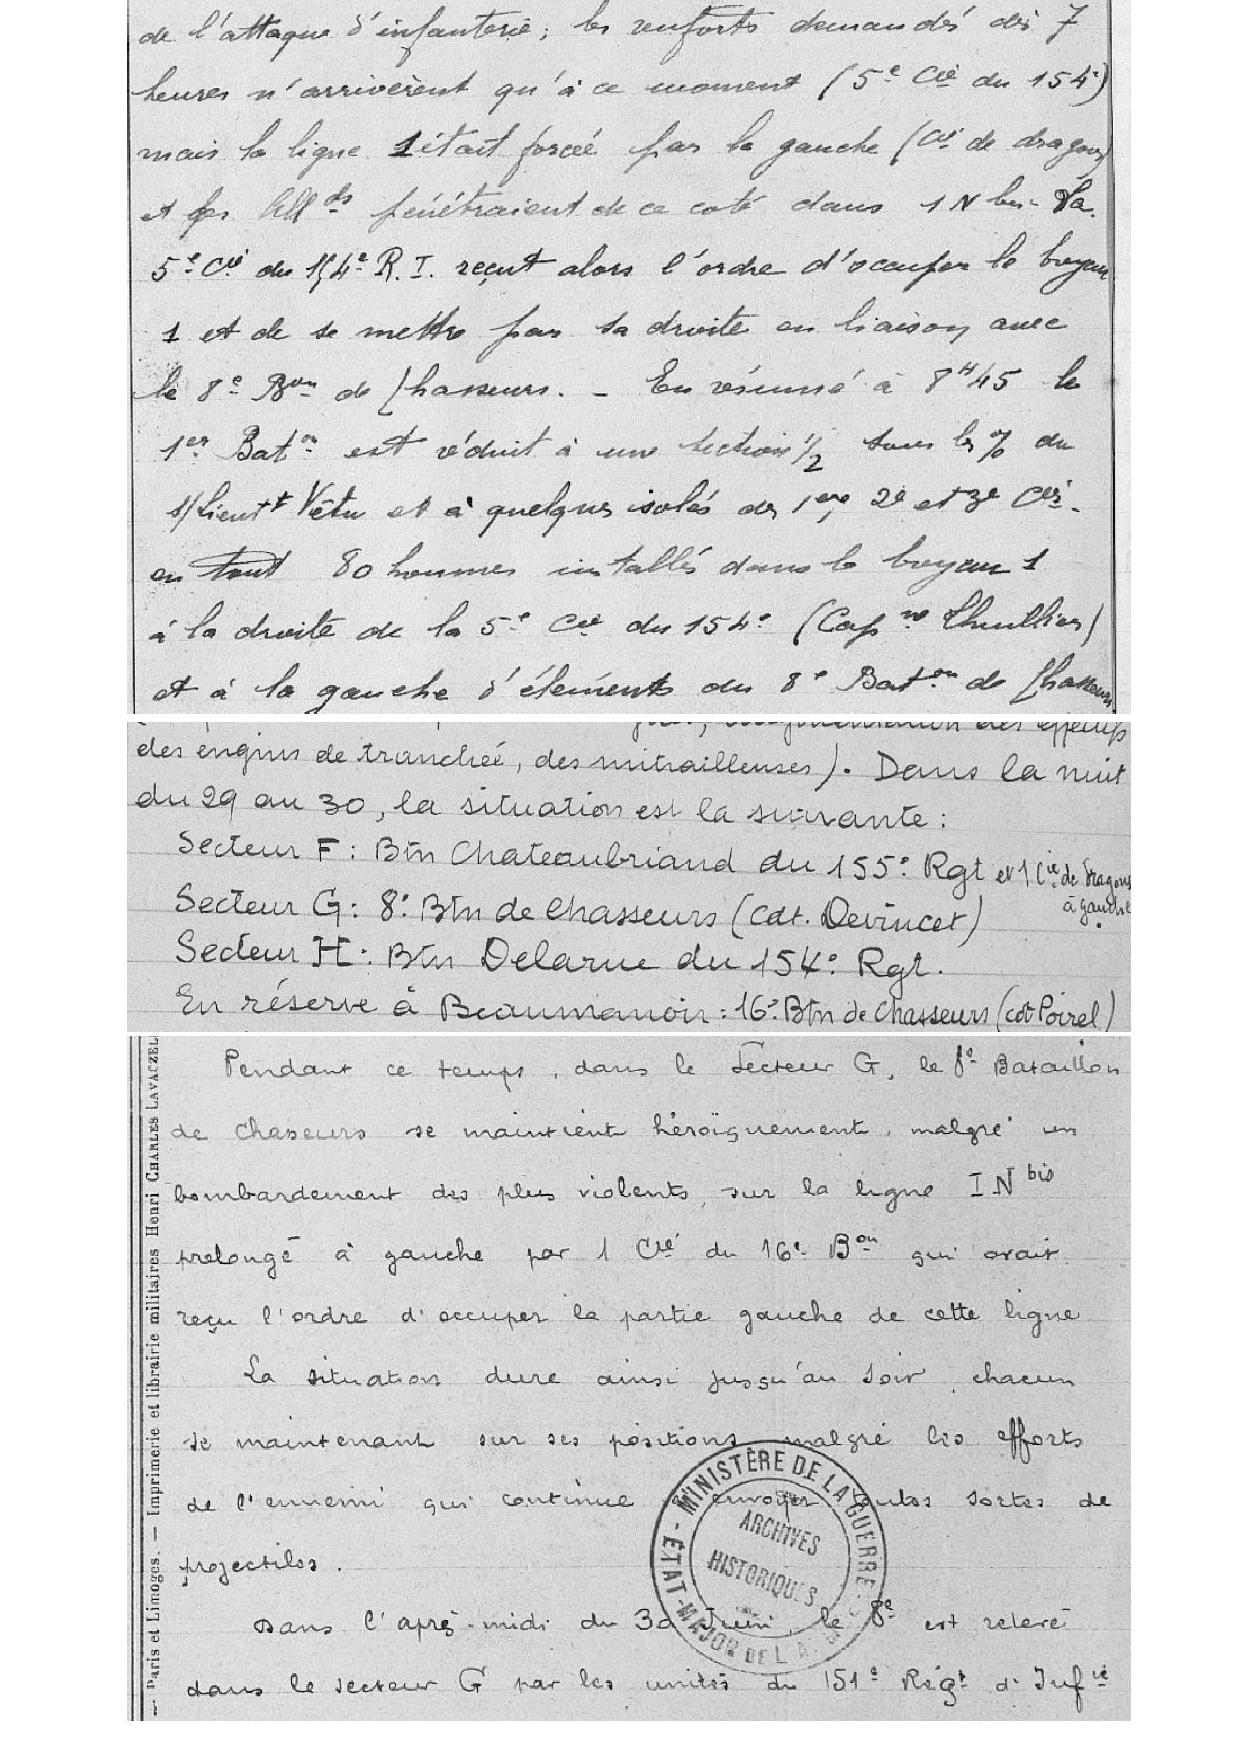 de l'attaque d'infanterie; les renforts demandés dès 7
heures n'arrivèrent qu'à ce moment (5e Cie du 154e)
mais la ligne 1 était forcée par la gauche (Cie de dragons)
et les Allds pénétraient de ce coté dans 1 N bis - La
5e Cie du 154e R.I. reçut alors l'ordre d'occuper le boyau
1 et de se mettre par sa droite en liaison avec
le 8e Bon de Chasseurs. - En résumé à 8H45 le
1er Baton est réduit à une section 1/2 sous les % du
s/Lieutt Vêtu et à quelques isolés des 1ere, 2e et 3e Cies -
en tout 80 hommes installés dans le boyau 1
à la droite de la 5e Cie du 154e (Capne Thuillier)
et à la gauche d'éléments du 8e Baton de Chasseurs
des effectifs
des engins de tranchée, des mitrailleuses). Dans la nuit
du 29 au 30, la situation est la suivante:
Secteur F: Btn Chateaubriand du 155e Rgt et 1 Cie de Dragons
à gauche.
Secteur G: 8e Btn de Chasseurs (Cdt. Devincet)
Secteur H: Btn Delarue du 154e Rgt.
En réserve à Beaumanoir: 16e Btn de Chasseurs (cdt Poirel)
Pendant ce temps, dans le Secteur G, le 8e Bataillon
de Chasseurs se maintient héroïquement, malgré un
bombardement des plus violents, sur la ligne I N bis
prolongé à gauche par 1 Cie du 16e Bon qui avait
reçu l'ordre d'occuper la partie gauche de cette ligne
La situation dure ainsi jusqu'au soir, chacun
se maintenant sur ses positions malgré les efforts
de l'ennemi qui continue à envoyer toutes sortes de
projectiles.
Dans l'aprè-midi du 30 Juin, le 8e est relevé
dans le secteur G par les unités du 151e Régt d'Infie
— Paris et Limoges. — Imprimerie et librairie militaires Henri CHARLES LAVAUZEL
ÉTAT-MAJOR DE L'A - MINISTÈRE DE LA GUERRE
ARCHIVES
HISTORIQUES